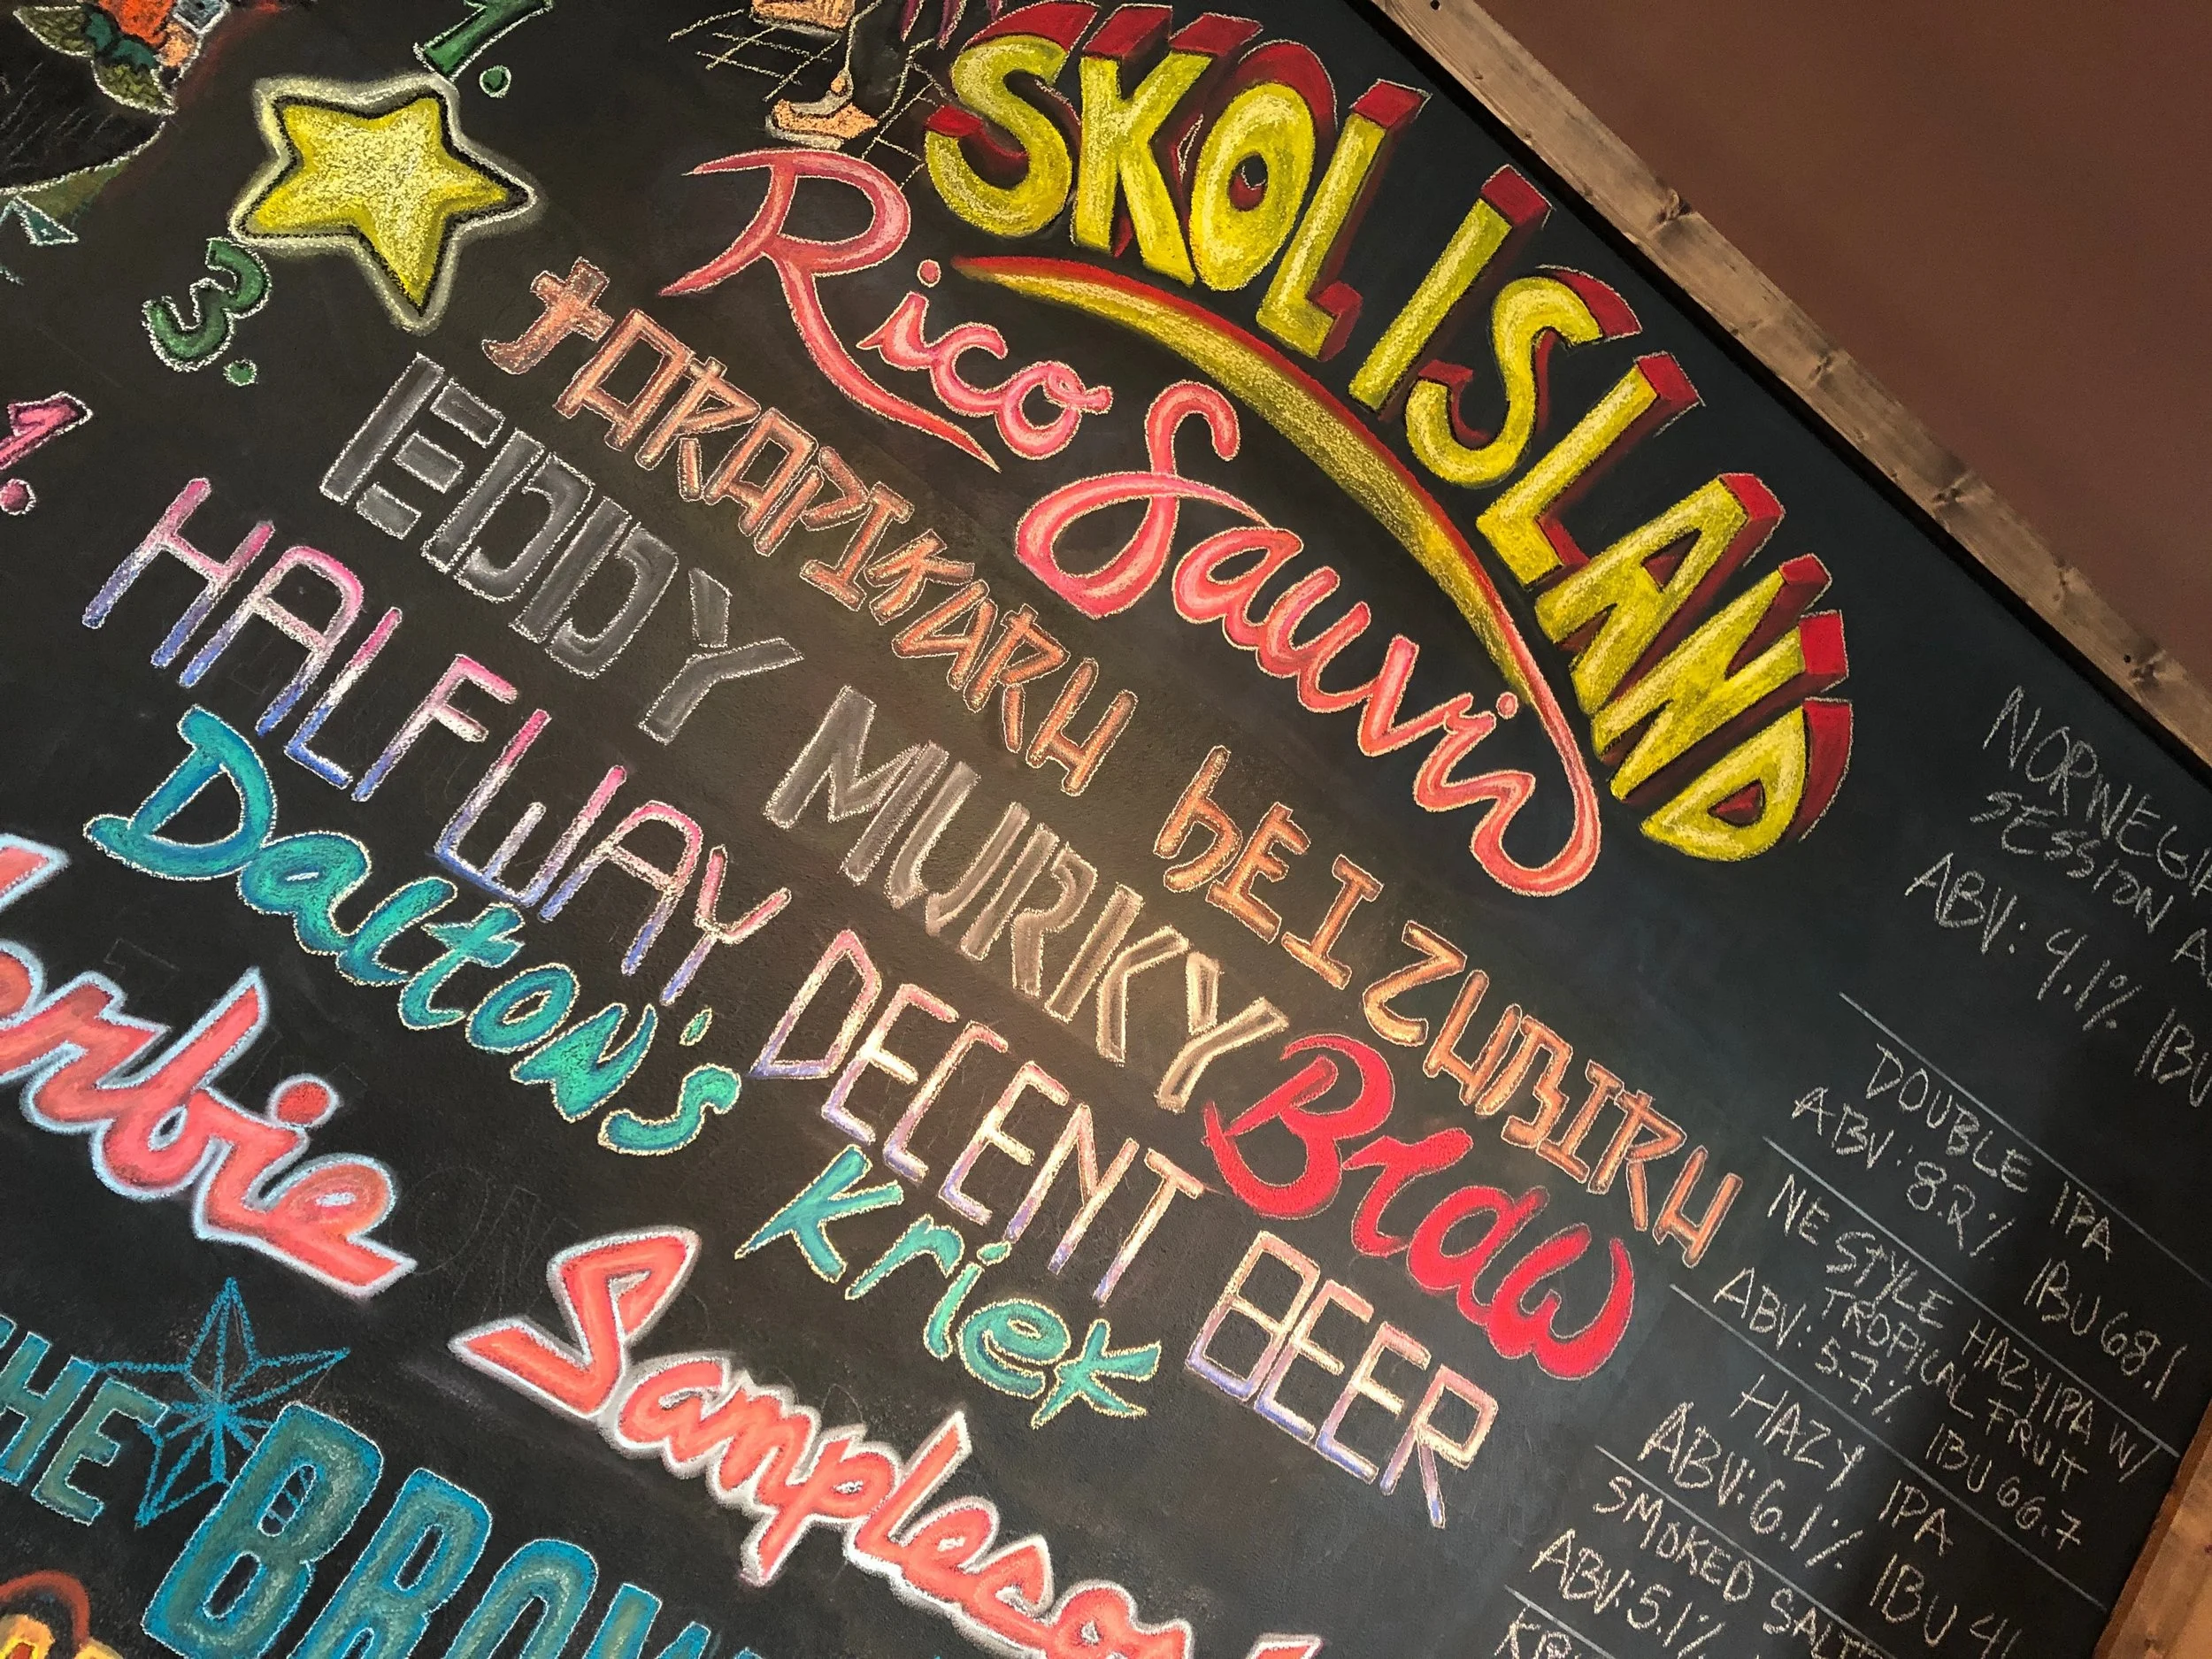 1.
SKOL ISLAND
NORWEGIA
SESSION A
ABV: 4.1% IBU
Rico Sauvin
DOUBLE IPA
ABV: 8.2% IBU 68.1
3.
tARAPIKARH hEIZUBIRH
NE STYLE HAZY IPA W/
TROPICAL FRUIT
ABV: 5.7% IBU 66.7
EDDY MURKY
HAZY IPA
ABV: 6.1% IBU 41
1.
HALFWAY DECENT BEER Braw
SMOKED SALTE
ABV: 5.1%
Dalton's Kriek
KRI
orbie Sampleson
HE BROW